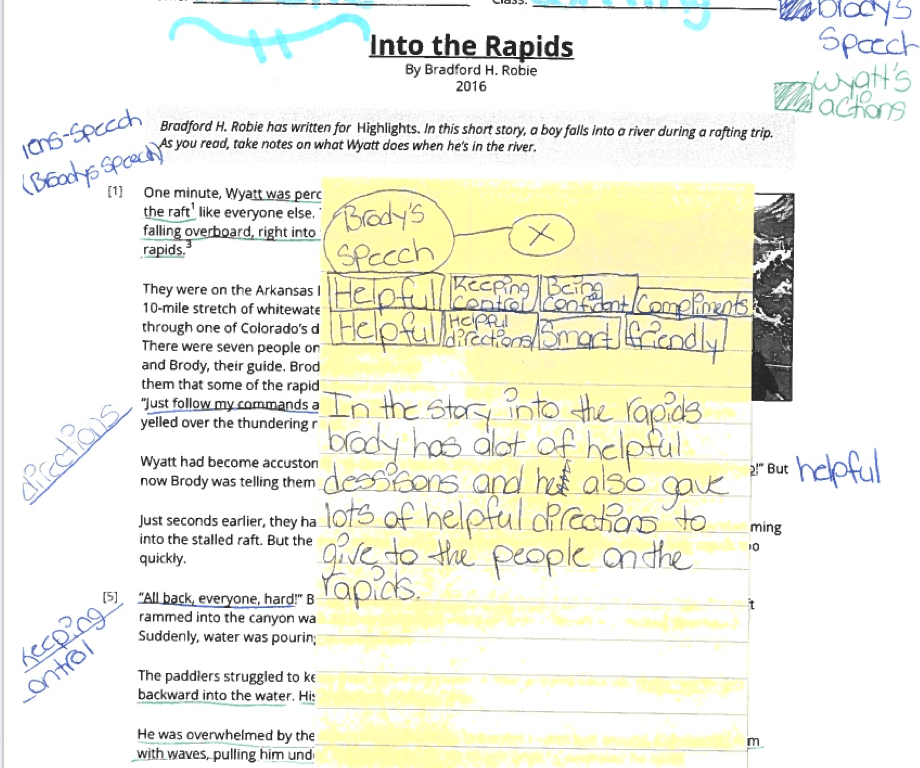 Class:
Brodys
Speech
Wyatt's
actions
Into the Rapids
By Bradford H. Robie
2016
lens-Speech
(Broodys Speech)
Bradford H. Robie has written for Highlights. In this short story, a boy falls into a river during a rafting trip.
As you read, take notes on what Wyatt does when he's in the river.
[1] One minute, Wyatt was perc
the raft1 like everyone else.
falling overboard, right into
rapids.3
They were on the Arkansas
10-mile stretch of whitewate
through one of Colorado's d
There were seven people on
and Brody, their guide. Brod
them that some of the rapid
"Just follow my commands a
yelled over the thundering r
directions
Wyatt had become accuston
now Brody was telling them
!" But
helpful
Just seconds earlier, they ha
ming
into the stalled raft. But the
quickly.
[5] "All back, everyone, hard!" B
rammed into the canyon wa
Suddenly, water was pouring
keeping
ontrol
The paddlers struggled to ke
backward into the water. His
He was overwhelmed by the
m
with waves, pulling him und
Brody's
Speech
X
Helpful Keeping control Being Confident Compliments
Helpful Helpful directions Smart friendly
In the story into the rapids
brody has alot of helpful
dessisons and he also gave
lots of helpful directions to
give to the people on the
rapids.